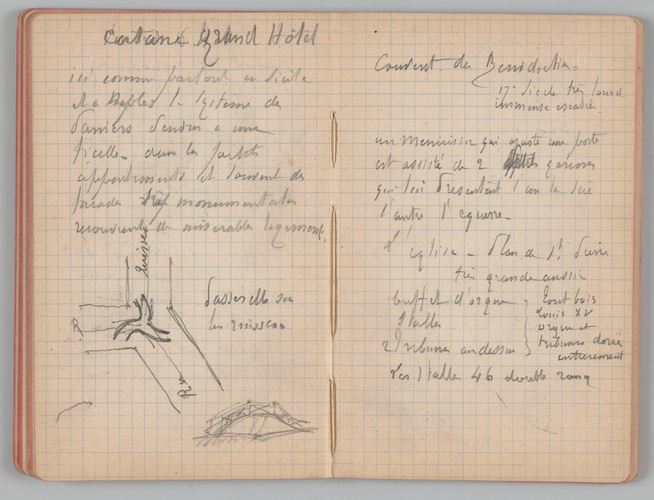 Catane Grand Hôtel
ici comme partout en Sicile
et a Naples le systeme de
paniers pendus a une
ficelle - dans les petits
appartements et souvent des
facades trop monumentales
recouvrent de miserables logements.
ruisseau
R
Rue
passerelle sur
les ruisseau
Couvent des Benedictins -
17e siecle très lourd
immense escalier
un Menuisier qui ajuste une porte
est assisté de 2 garcons
qui lui presentent l'un la scie
l'autre l'equerre -
l'eglise - Plan de St. Pierre
très grande aussi
buffet d'orgue
Stalles
2 tribunes au dessus
tout bois
Louis XV
orgue et
tribunes dorées
entierement
Les Stalles 46 double rang